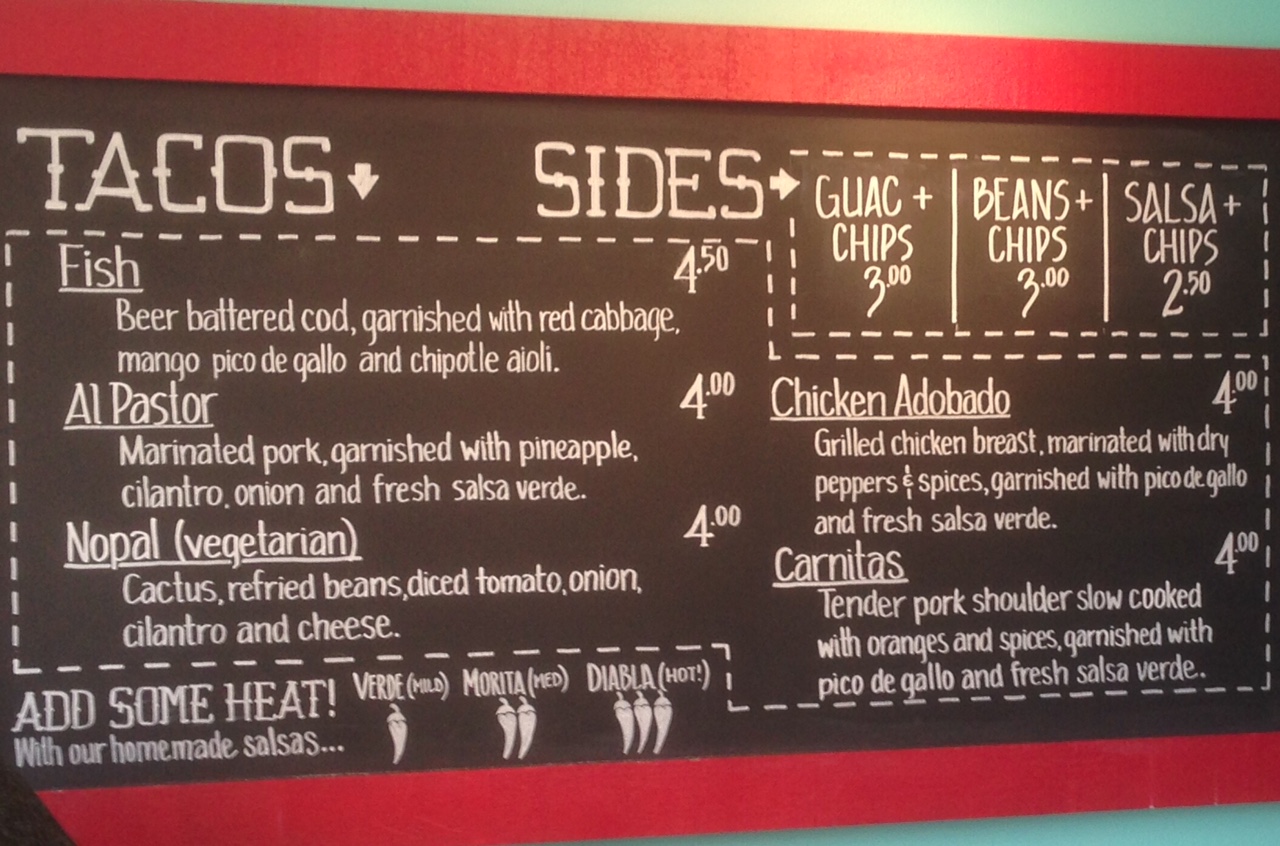 TACOS
Fish 4.50
Beer battered cod, garnished with red cabbage,
mango pico de gallo and chipotle aioli.
Al Pastor 4.00
Marinated pork, garnished with pineapple,
cilantro, onion and fresh salsa verde.
Nopal (vegetarian) 4.00
Cactus, refried beans, diced tomato, onion,
cilantro and cheese.
SIDES
GUAC +
CHIPS
3.00
BEANS +
CHIPS
3.00
SALSA +
CHIPS
2.50
Chicken Adobado 4.00
Grilled chicken breast, marinated with dry
peppers & spices, garnished with pico de gallo
and fresh salsa verde.
Carnitas 4.00
Tender pork shoulder slow cooked
with oranges and spices, garnished with
pico de gallo and fresh salsa verde.
ADD SOME HEAT!
With our homemade salsas...
VERDE (MILD)
MORITA (MED)
DIABLA (HOT!)